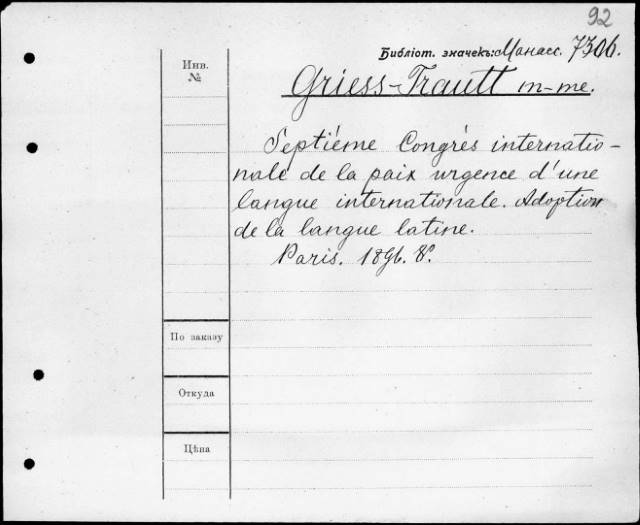 92
Библіот. значекъ: Манасс. 7306.
Инв.
№
Griess-Trautt m-me.
Septiéme Congrés internatio-
nale de la paix urgence d'une
langue internationale. Adoption
de la langue latine.
Paris. 1896. 8°.
По заказу
Откуда
Цѣна